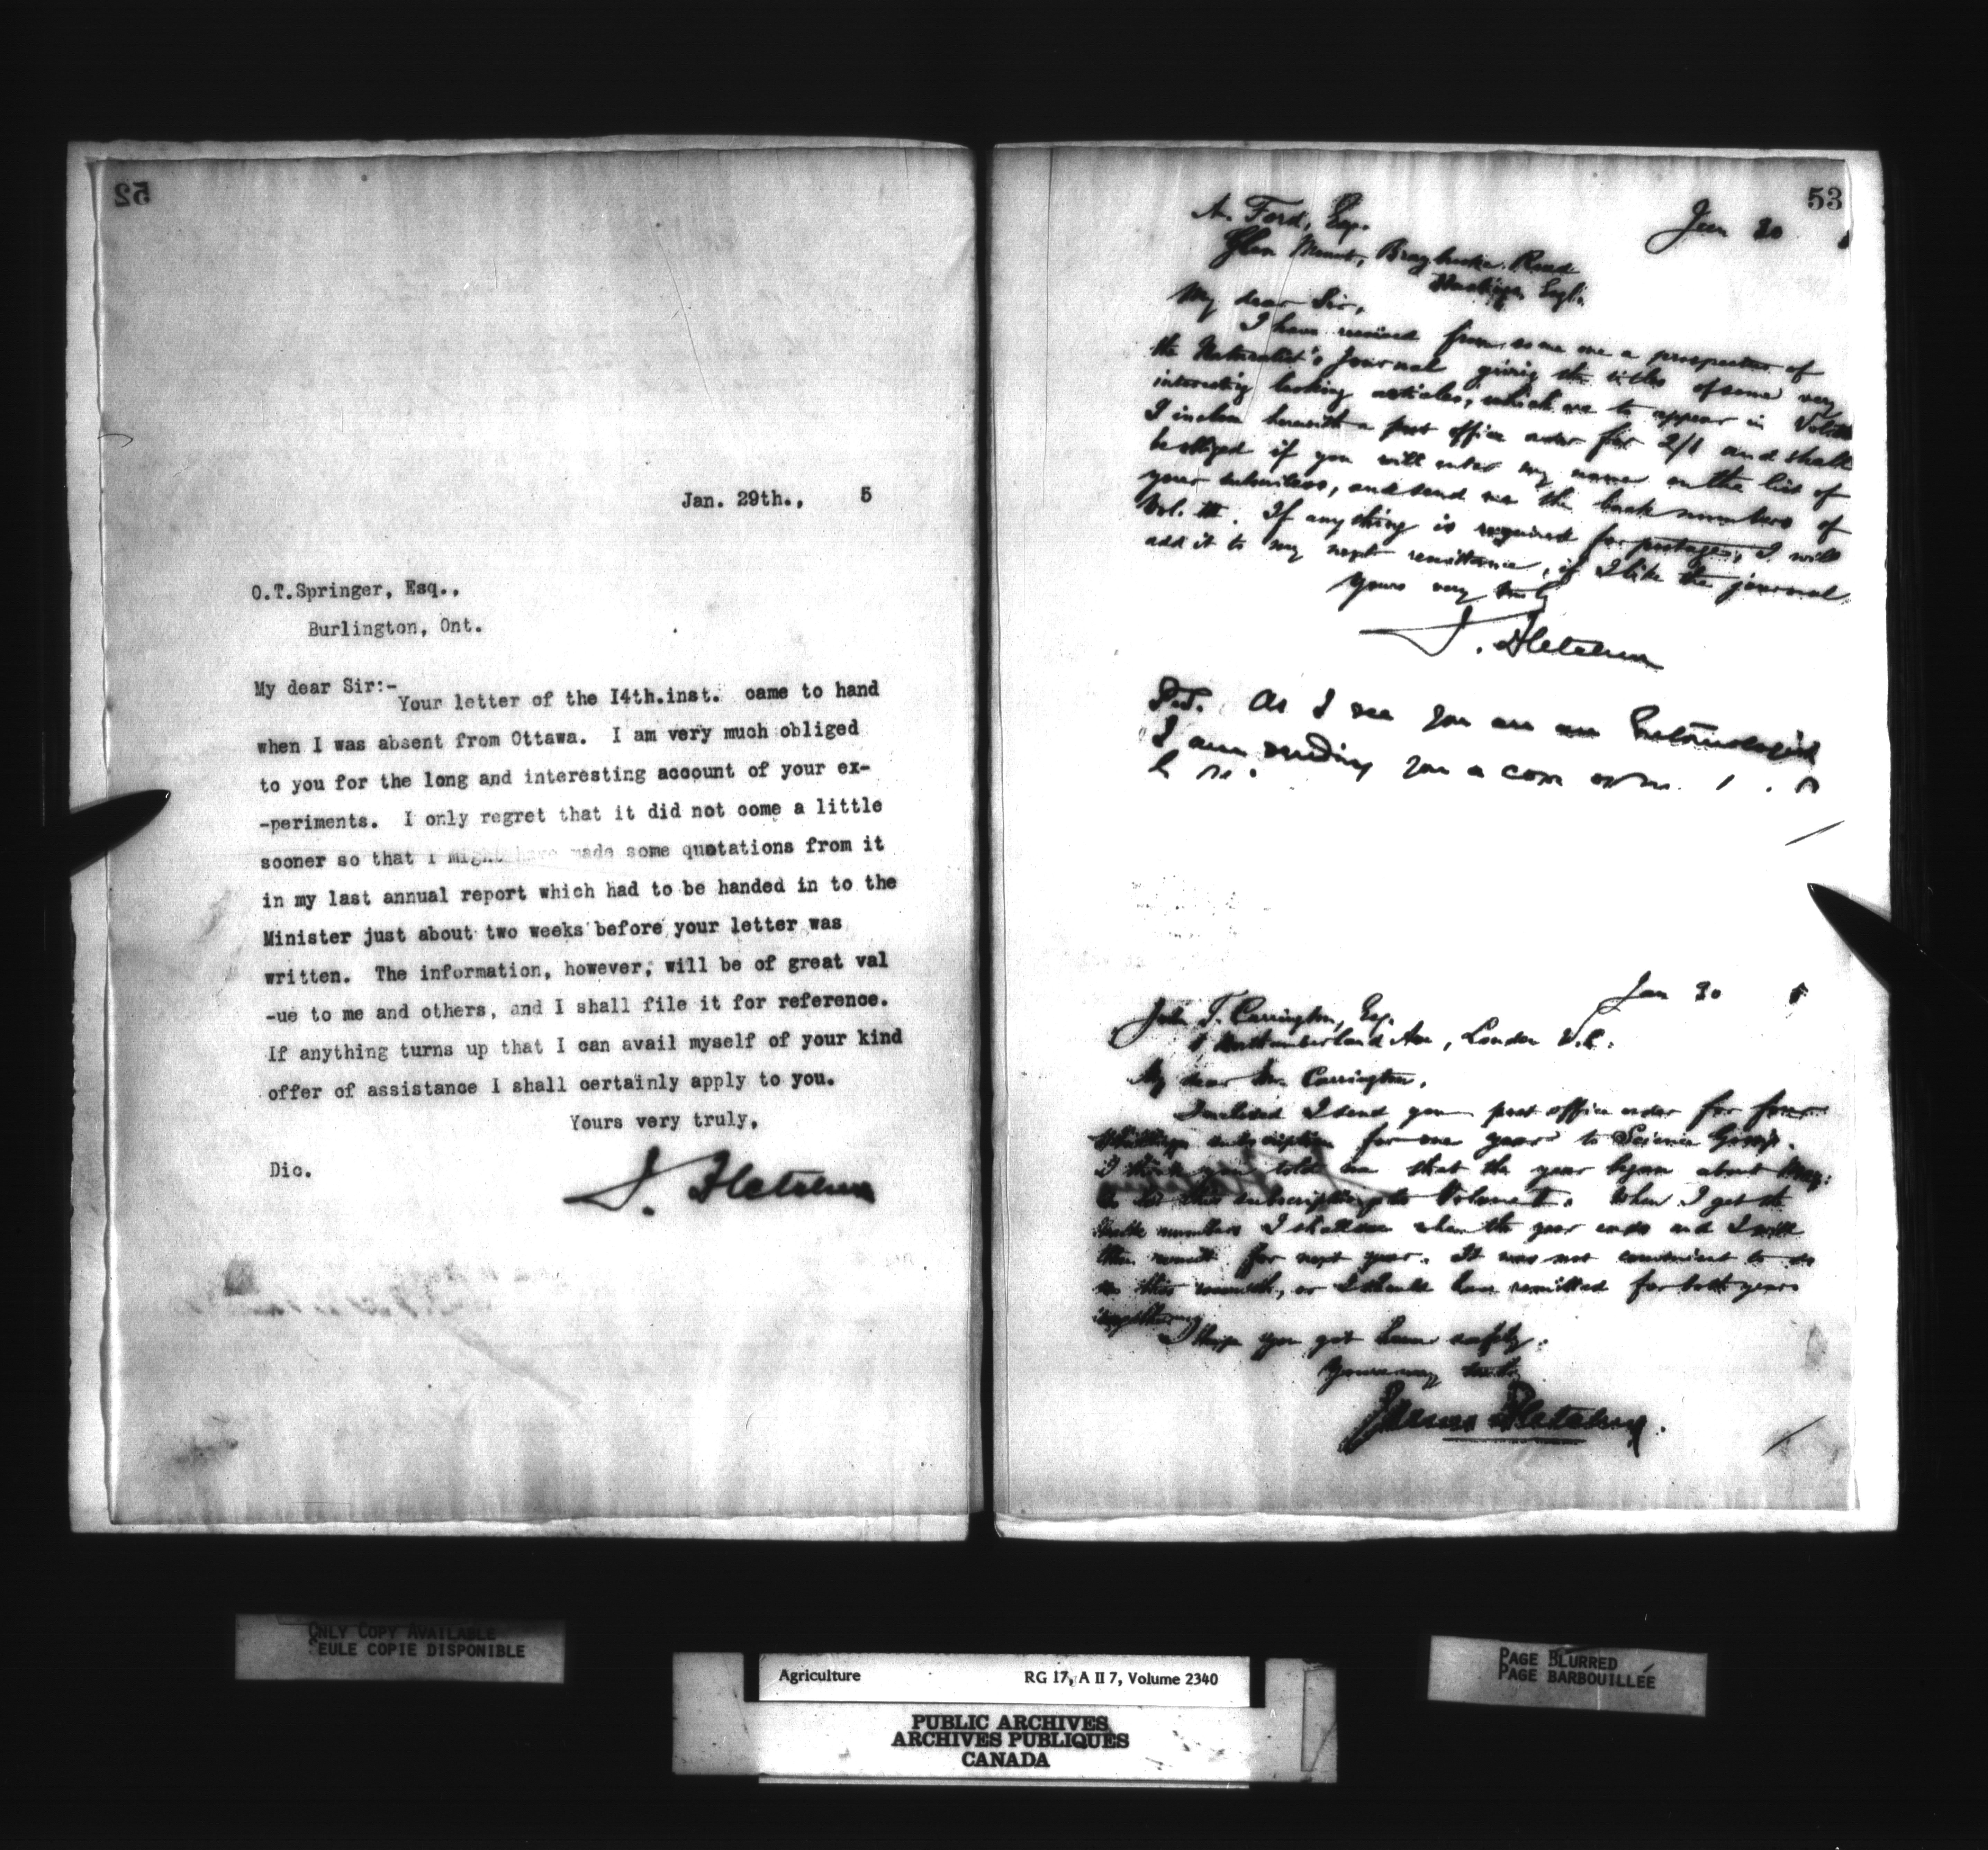 52
Jan. 29th., 5
O.T.Springer, Esq.,
Burlington, Ont.
My dear Sir:-
Your letter of the I4th.inst. came to hand
when I was absent from Ottawa. I am very much obliged
to you for the long and interesting account of your ex-
-periments. I only regret that it did not come a little
sooner so that I might have made some quotations from it
in my last annual report which had to be handed in to the
Minister just about two weeks before your letter was
written. The information, however, will be of great val
-ue to me and others, and I shall file it for reference.
If anything turns up that I can avail myself of your kind
offer of assistance I shall certainly apply to you.
Yours very truly,
Dic.
J. Fletcher
53
Jan 30
A. Ford, Esq.
Glen Mount, Road
Hastings, Engl.
My dear Sir,
I have received from some one a prospectus of
the Naturalist's Journal giving the titles of some very
interesting looking articles, which are to appear in
I inclose herewith a post office order for 2/1 and shall
be obliged if you will enter my name on the list of
your subscribers, and send me the back numbers of
Vol. III. If anything is required for postage, I will
add it to my next remittance, if I like the journal
Yours very truly
J. Fletcher
P.S. As I see you are an Entomologist
I am sending you a copy of
Jan 30 5
John T. Carrington, Esq.
1 Northumberland Ave, London W.C.
My dear Mr. Carrington,
Inclosed I send you post office order for four
shillings subscription for one year to Science Gossip.
I think you told me that the year began about May.
this subscription Volume I. When I get the
numbers I shall see when the year ends and I will
then remit for next year. It was not convenient to do
so this month, or I should have remitted for both years
together.
I hope you got home safely.
Yours very truly
James Fletcher.
ONLY COPY AVAILABLE
SEULE COPIE DISPONIBLE
PAGE BLURRED
PAGE BARBOUILLÉE
Agriculture RG 17, A II 7, Volume 2340
PUBLIC ARCHIVES
ARCHIVES PUBLIQUES
CANADA